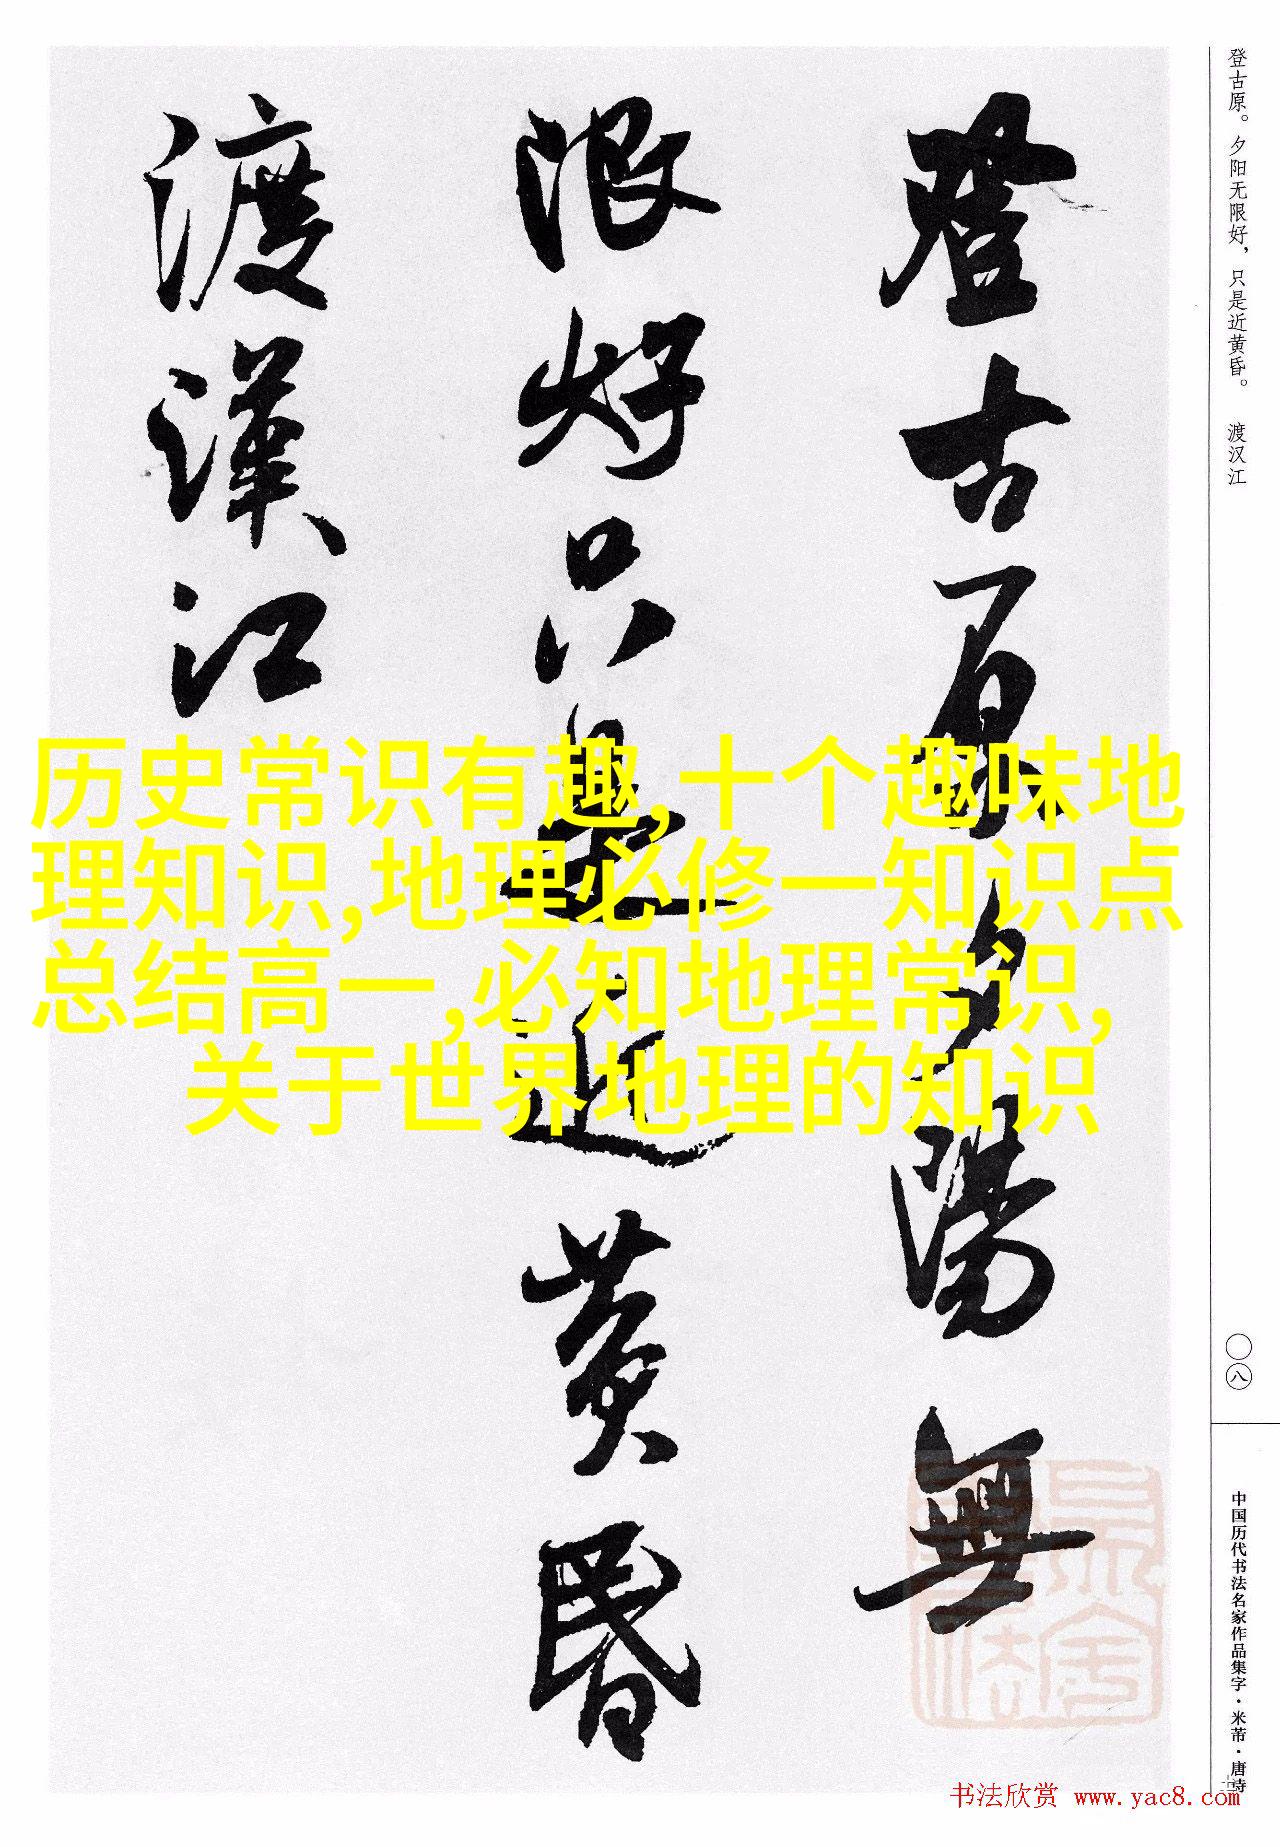 登古原夕陽無
限好只是近黄昏
渡漢江
登古原。夕阳无限好，只是近黄昏。 渡汉江
历史常识有趣,十个趣味地
理知识,地理必修一知识点
总结高一,必知地理常识,
关于世界地理的知识
〇八
中国历代书法名家作品集字·米芾·唐诗
书法欣赏 www.yac8.com